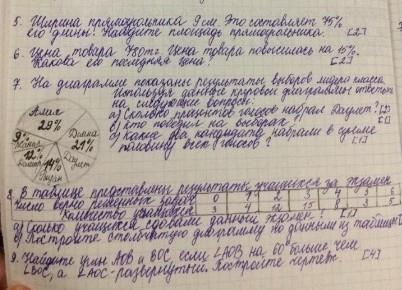 5. Ширина прямоугольника 9 см. Это составляет 75%
его длины. Найдите площадь прямоугольника. [2]
6. Цена товара 780тг. Цена товара повысилась на 15%.
Какова его последняя цена? [2]
7. На диаграмме показаны результаты выборов лидера класса.
Используя данные круговой диаграммы ответьте
на следующие вопросы:
а) Сколько процентов голосов набрал Даулет?
в) кто победил на выборах?
с) Какие два кандидата набрали в сумме
половину всех голосов?
Амие
29%
Диана
21%
Даулет
14%
12%
9%
8. В таблице представлены результаты учащихся за экзамен
Число верно решенных задач 0 1 2 3 4 5 6
Количество учащихся
а) Сколько учащихся сдавали данный экзамен? [1]
в) Постройте столбчатую диаграмму по данным из таблицы
9. Найдите углы АОВ и ВОС, если ∠АОВ на 60 больше, чем
∠ВОС, а ∠АОС-развернутый. Постройте чертеж. [4]